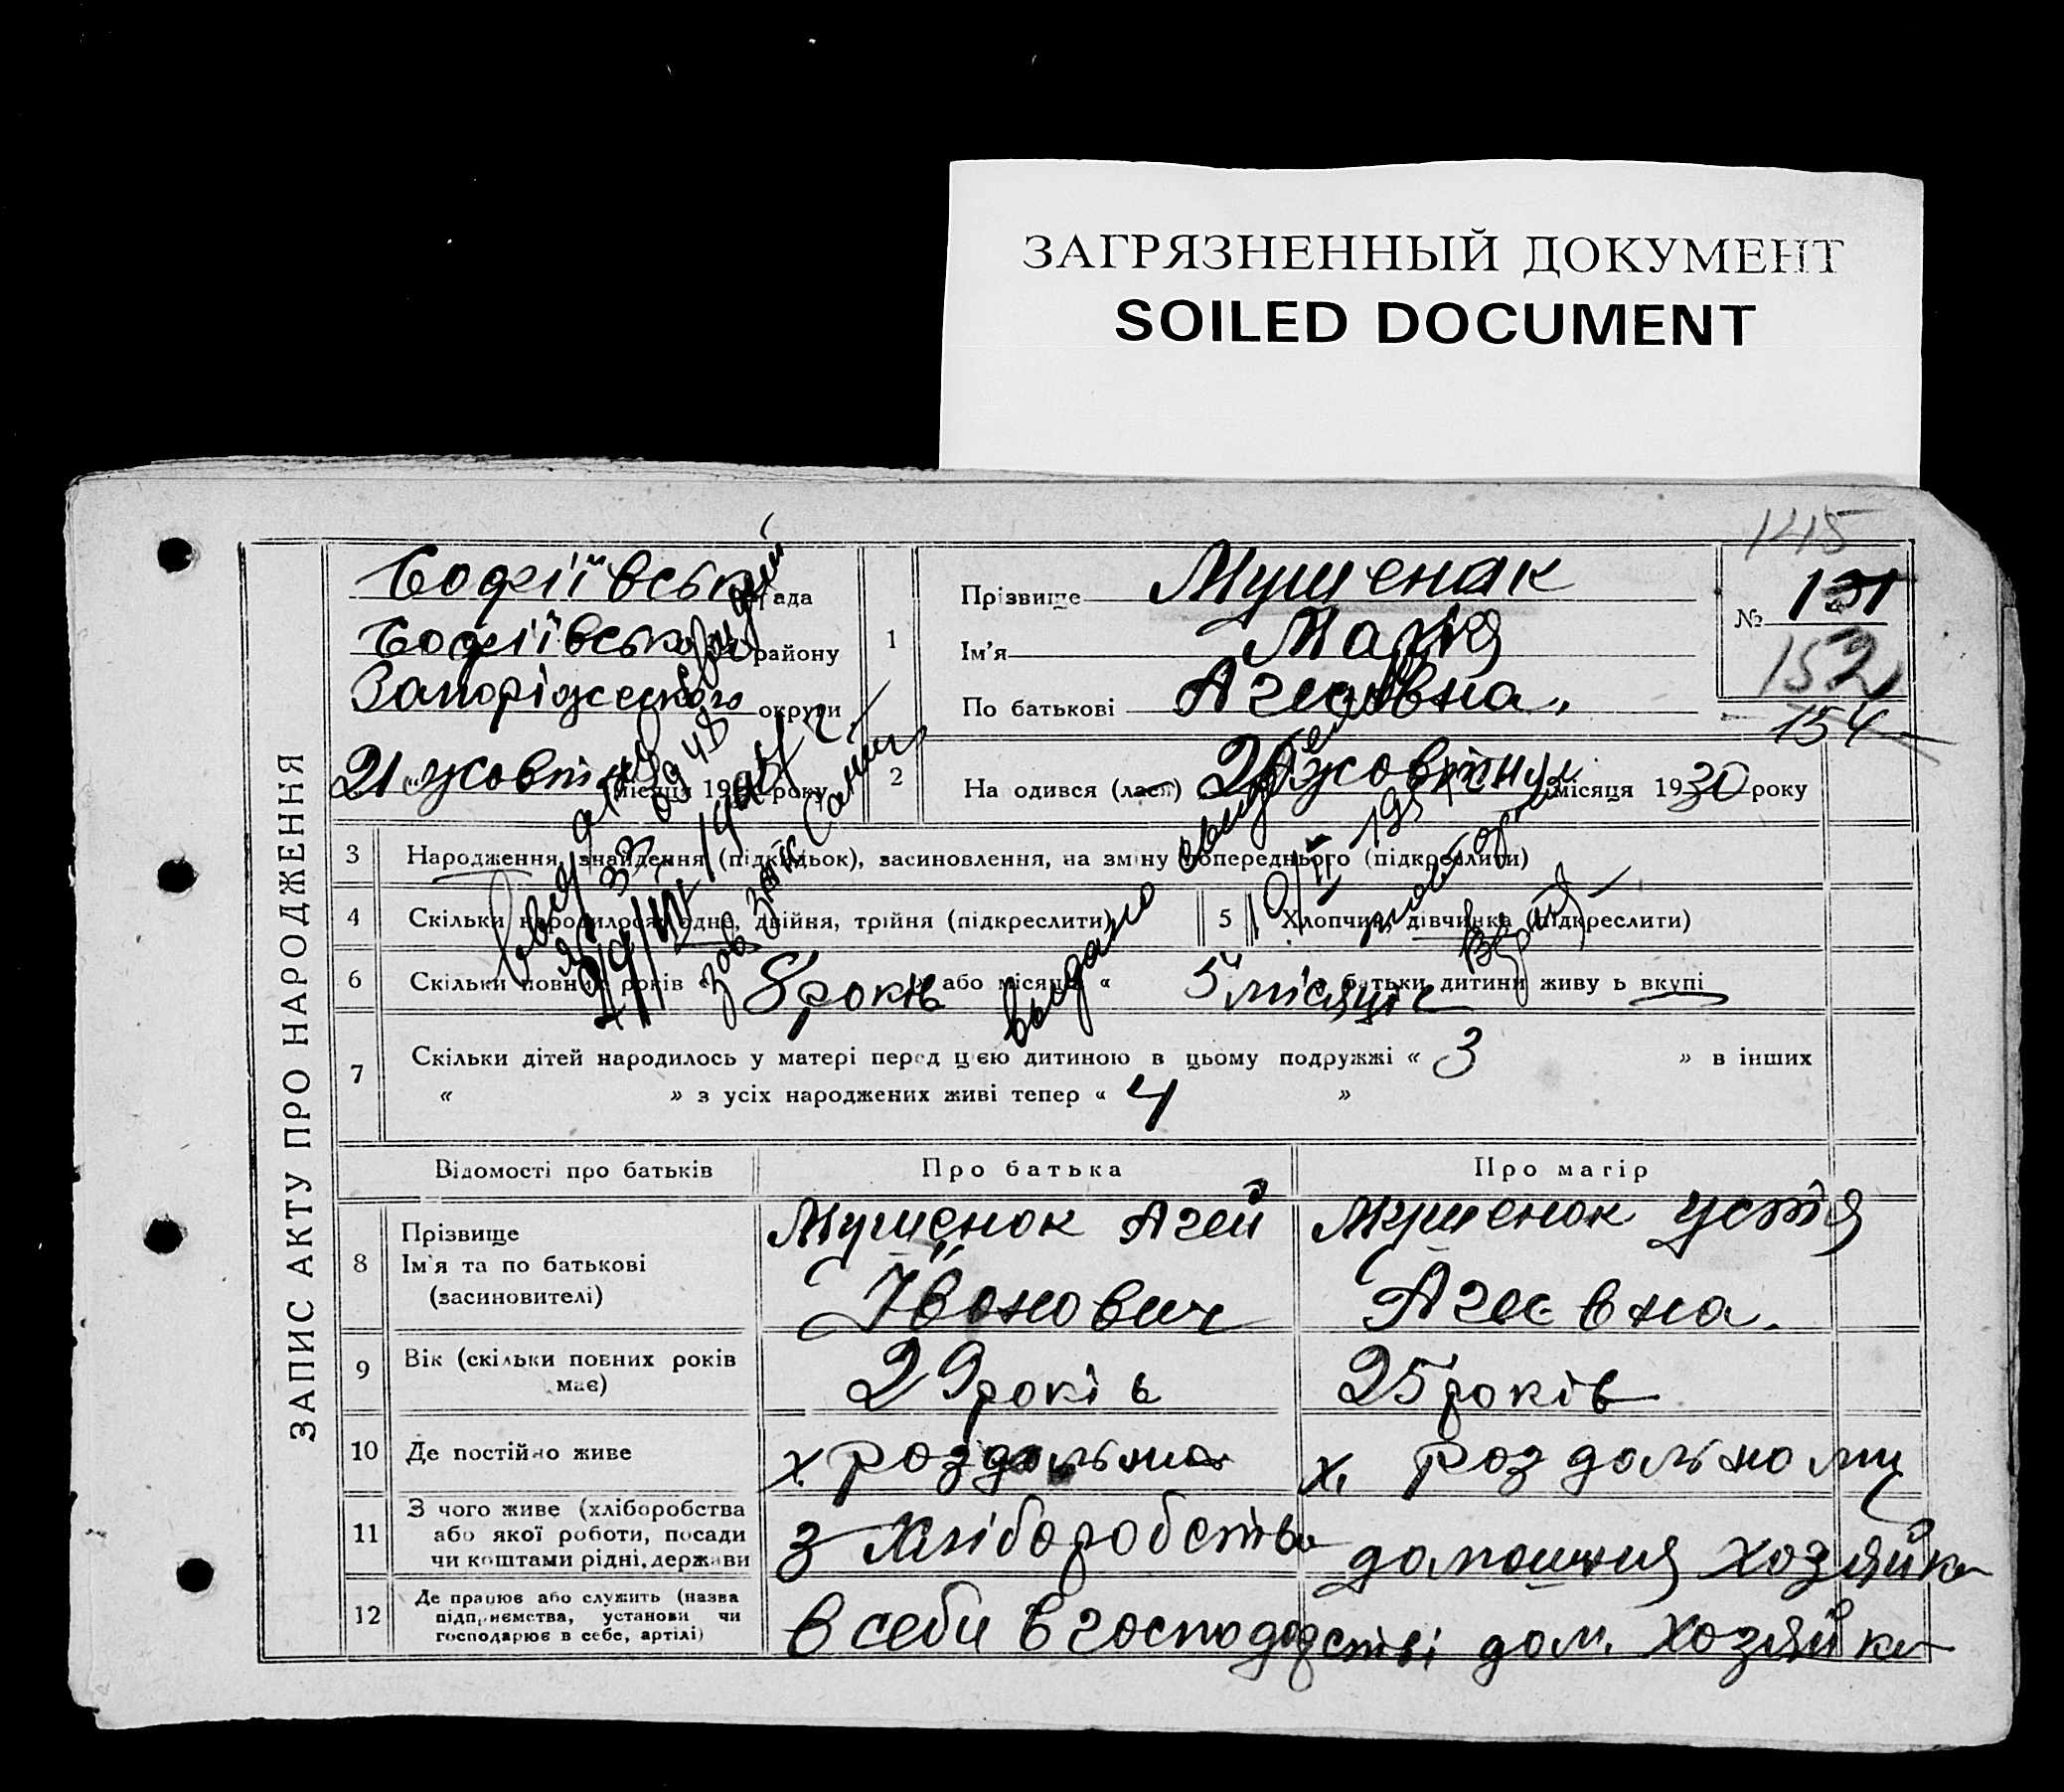 ЗАГРЯЗНЕННЫЙ ДОКУМЕНТ
SOILED DOCUMENT
145
ЗАПИС АКТУ ПРО НАРОДЖЕННЯ
Софіївська рада
Софіївського району
Запоріжського округи
21 жовтня місяця 19 року
1
Прізвище Мушенок
Ім'я Марія
По батькові Агеєвна.
№ 131
152
154
2
На одився (лася) 20 жовтня місяця 1930 року
3 Народження, знайдення (підкидьок), засиновлення, на зміну попереднього (підкреслити)
4 Скільки народилося: одно, двійня, трійня (підкреслити)
5 Хлопчик, дівчинка (підкреслити)
6 Скільки повних років « 8 років » або місяців « 5 місяців батьки дитини живу ь вкупі
7 Скільки дітей народилось у матері перед цією дитиною в цьому подружжі « 3 » в інших
« » з усіх народжених живі тепер « 4 »
Відомості про батьків
Про батька
Про матір
8 Прізвище
Ім'я та по батькові
(засиновителі)
Мушенок Агей
Івонович
Мушенок Устія
Агеєвна.
9 Вік (скільки повних років
має)
29 років
25 років
10 Де постійно живе
х роздольна
х. роздольному
11 З чого живе (хліборобства
або якої роботи, посади
чи коштами рідні, держави
З хліборобства
домошния хозяйка
12 Де працює або служить (назва
підприємства, установи чи
господарює в себе, артілі)
В себи в господарстві
дом. хозяйка